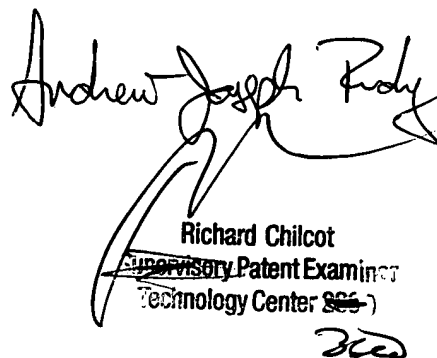 Andrew Joseph Rudy
Richard Chilcot
Supervisory Patent Examiner
Technology Center